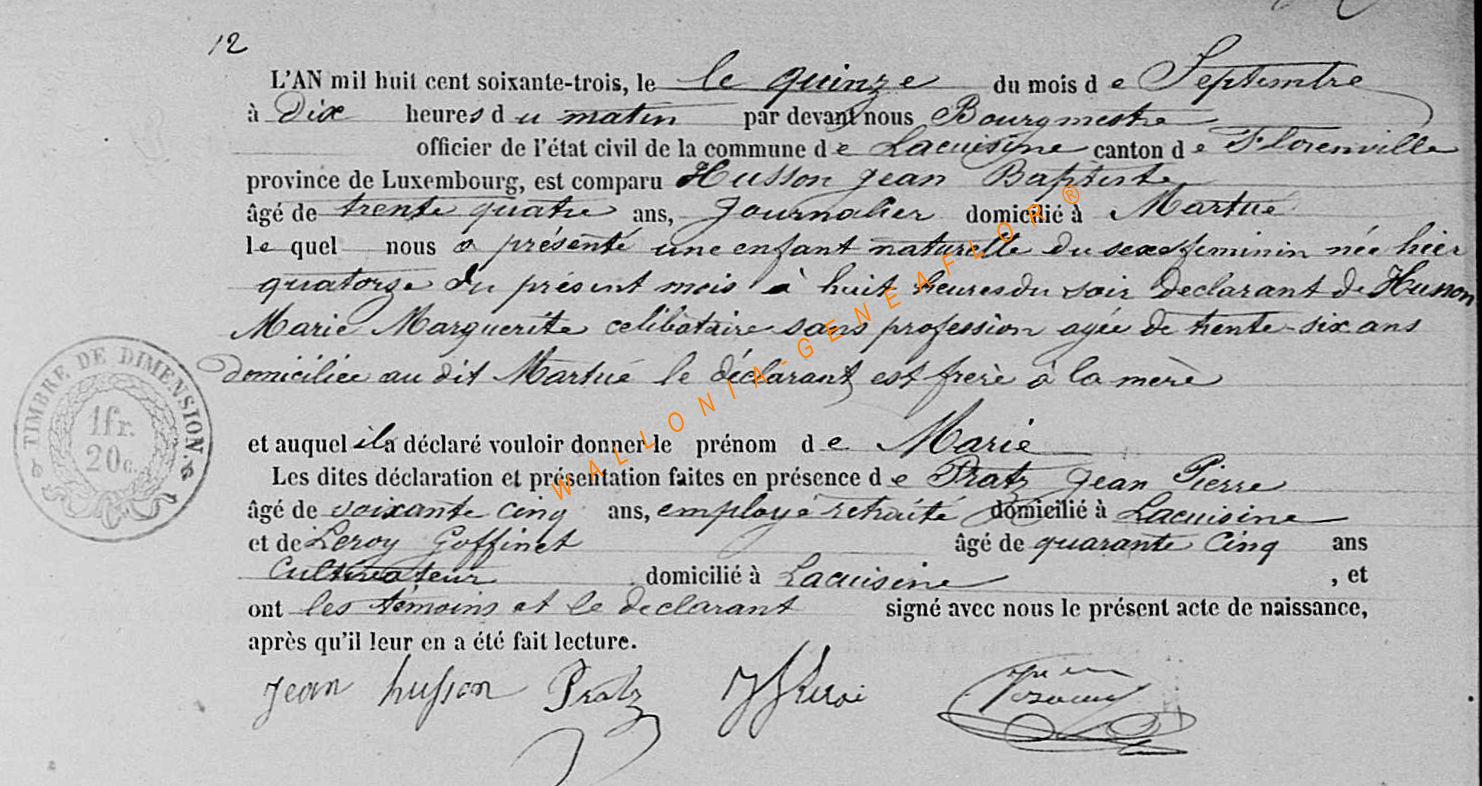 12
L'AN mil huit cent soixante-trois, le le quinze du mois de Septembre
à Dix heures du matin par devant nous Bourgmestre
officier de l'état civil de la commune de Lacuisine canton de Florenville
province de Luxembourg, est comparu Husson Jean Baptiste
âgé de trente quatre ans, Journalier domicilié à Martué
lequel nous a présenté une enfant naturelle du sexe feminin née hier
quatorze du présent mois à huit heures du soir Declarant de Husson
Marie Marguerite celibataire sans profession agée de trente-six ans
Domiciliée au dit Martué le déclarant est frère à la mère
et auquel il a déclaré vouloir donner le prénom de Marie
Les dites déclaration et présentation faites en présence de Pratz Jean Pierre
âgé de soixante cinq ans, employé retraité domicilié à Lacuisine
et de Leroy Goffinet âgé de quarante Cinq ans
Cultivateur domicilié à Lacuisine, et
ont les témoins et le declarant signé avec nous le présent acte de naissance,
après qu'il leur en a été fait lecture.
Jean husson Pratz
TIMBRE DE DIMENSION.
1fr.
20c.
WALLONIA-GENEAFLOR®